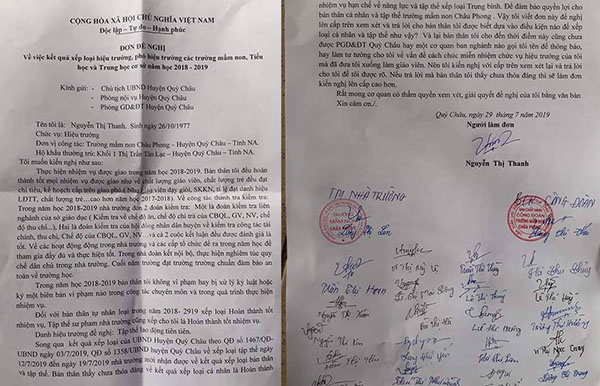 CỘNG HÒA XÃ HỘI CHỦ NGHĨA VIỆT NAM
Độc lập – Tự do – Hạnh phúc
ĐƠN ĐỀ NGHỊ
Về việc kết quả xếp loại hiệu trưởng, phó hiệu trưởng các trường mầm non, Tiểu
học và Trung học cơ sở năm học 2018 - 2019
Kính gửi: - Chủ tịch UBND Huyện Quỳ Châu
- Phòng nội vụ Huyện Quỳ Châu
- Phòng GD&ĐT Huyện Quỳ Châu
Tên tôi là: Nguyễn Thị Thanh. Sinh ngày 26/10/1977
Chức vụ: Hiệu trưởng
Đơn vị công tác: Trường mầm non Châu Phong – Huyện Quỳ Châu – Tỉnh NA.
Hộ khẩu thường trú: Khối 1 Thị Trấn Tân Lạc – Huyện Quỳ Châu – Tỉnh NA.
Tôi muốn kiến nghị như sau:
Thực hiện nhiệm vụ được giao trong năm học 2018- 2019. Bản thân tôi đều hoàn
thành tốt mọi nhiệm vụ được giao như về chất lượng giáo viên, chất lượng trẻ đều đạt
chỉ tiêu, kế hoạch cấp trên giao phó ( Như giáo viên dạy giỏi, SKKN, tỉ lệ đạt danh hiệu
LĐTT, chất lượng trẻ…cao hơn năm học 2017-2018). Về công tác thanh tra kiểm tra:
Trong năm học 2018-2019 nhà trường đón 2 đoàn kiểm tra: Một là đoàn kiểm tra liên
nghành của sở giáo dục ( Kiểm tra về chế độ ăn, chế độ chi trả của CBQL, GV, NV, chế
độ thu chi...), Hai là đoàn kiểm tra của hội đồng nhân dân huyện về kiểm tra công tác tài
chính, thu chi, Chế độ của CBQL, GV, NV...và cả 2 cuộc kết luận đều được đánh giá là
tốt. Về các hoạt động động trong nhà trường và các cấp tổ chức đề ra trong năm học đề
tham gia đầy đủ và thực hiện tốt. Trong nhà đoàn kết nội bộ, thực hiện nghiêm túc quy
chế dân chủ trong nhà trường. Cuối năm trường đạt trường trường chuẩn đảm bảo an
toàn về trường học.
Trong năm học 2018-2019 bản thân tôi không vi phạm hay bị xử lý kỷ luật hoặc
ký một biên bản vi phạm nào trong công tác chuyên môn và trong quá trình thực hiện
nhiệm vụ.
Đối với bản thân tự nhận loại trong năm 2018- 2019 xếp loại Hoàn thành tốt
nhiệm vụ, Tập thể sư phạm nhà trường cũng xếp cho tôi là Hoàn thành tốt nhiệm vụ.
Danh hiệu trường đề nghị: Tập thể lao động tiên tiến.
Song qua kết xếp loại của UBND Huyện Quỳ Châu theo QĐ số 1467/QĐ-
UBND ngày 03/7/2019, QĐ số 1358/UBND huyện Quỳ Châu về xếp loại tập thể ngày
12/7/2019 đến ngày 19/7/2019 nhà trường mới nhận được về kết quả xếp loại bản thân
và tập thể. Bản thân tôi thấy chưa thỏa đáng về kết quả xếp loại cá nhân là Hoàn thành
nhiệm vụ hạn chế về năng lực và tập thể xếp loại Trung bình. Để đảm bảo quyền lợi cho
bản thân cá nhân và tập thể trường mầm non Châu Phong . Vậy tôi viết đơn này đề nghị
lên cấp trên xem xét và trả lời cho bản thân tôi được biết dựa vào điều kiện nào để xếp
loại cá nhân và tập thể như vậy? Và bản thân tôi cho đến thời điểm này cũng chưa được
PGD&ĐT Quỳ Châu hay một cơ quan ban nghành nào gọi tôi lên để thông báo,
hay làm tư tưởng cho tôi về vấn đề cách chức miễn nhiệm chức vụ hiệu trưởng của tôi
mà đã đưa tôi xuống làm giáo viên. Nên tôi kiến nghị với cấp trên xem xét lại và trả lời
cho tôi để tôi được rõ. Nếu trả lời mà bản thân tôi thấy chưa thỏa đáng thì sẽ làm đơn
kiến nghị lên cấp cao hơn.
Rất mong cơ quan có thẩm quyền xem xét, giải quyết đề nghị của tôi bằng văn bản
Xin cảm ơn./.
Quỳ Châu, ngày 29 tháng 7 năm 2019
Người làm đơn
Nguyễn Thị Thanh
TM NHÀ TRƯỜNG
BCH CÔNG ĐOÀN